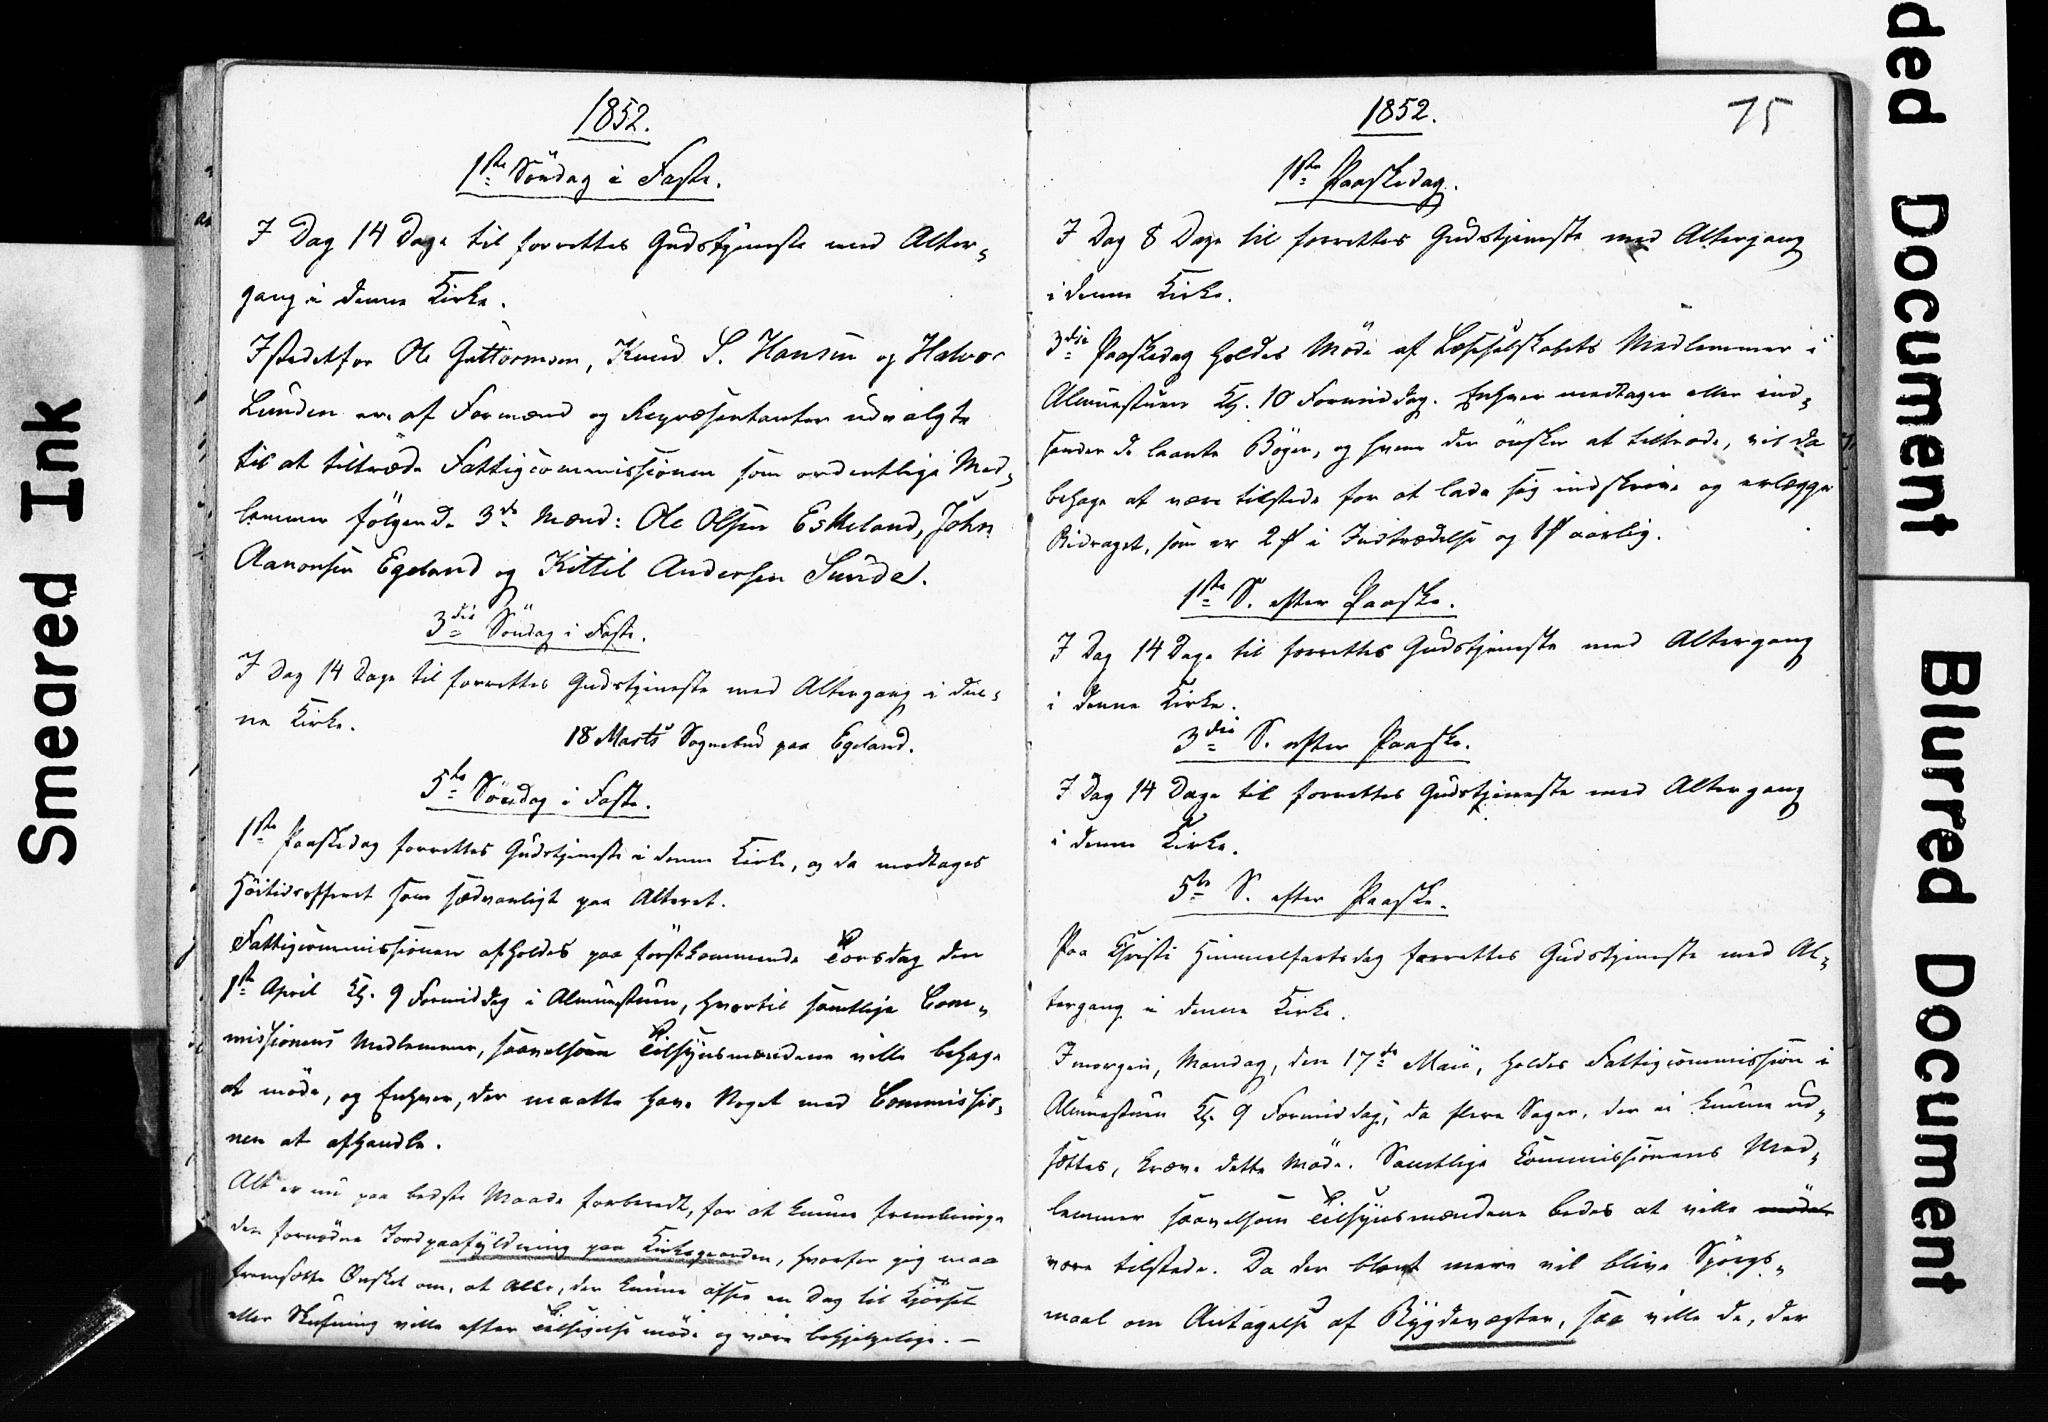 1852.
1ste Söndag i Faste.
I Dag 14 Dage til forrettes Gudstjeneste med Alter-
gang i denne Kirke.
Istedetfor Ole Guttormsen, Knud S. Hansen og Halvor
Lunden ere af Formænd og Repræsentanter udvalgte
til at tiltræde Fattigcommissionen som ordentlige Med-
lemmer følgende 3de Mænd: Ole Olsen Eskeland, John
Aanonsen Egeland og Kittil Andersen Sunde.
3die Söndag i Faste.
I Dag 14 Dage til forrettes Gudstjeneste med Altergang i den-
ne Kirke.
18 Marts Sognebud paa Egeland.
5te Söndag i Faste.
1ste Paaskedag forrettes Gudstjeneste i denne Kirke, og da modtages
Höitidsofferet som sædvanligt paa Alteret.
Fattigcommissionen afholdes paa förstkommende Torsdag den
1ste April Kl. 9 Formiddag i Almuestuen, hvortil samtlige Com-
missionens Medlemmer, saavelsom Tilsynsmændene ville behage
at møde, og Enhver, der maatte have Noget med Commissio-
nen at afhandle.
Alt er nu paa bedste Maade forberedt, for at kunne frembringe
den fornødne Jordpaafyldning paa Kirkegaarden, hvorfor jeg maa
fremsætte Ønsket om, at Alle, der kunne afsee en Dag til Kjörsel
eller Skufning ville efter Tilsigelse møde og være behjelpelige. —
1852.
75
1ste Paaskedag.
I Dag 8 Dage til forrettes Gudstjeneste med Altergang
i denne Kirke.
3die Paaskedag holdes Möde af Læseselskabets Medlemmer i
Almuestuen Kl. 10 Formiddag. Enhver medtager eller ind-
sender de laante Böger, og hvem der önsker at tiltræde, vil da
behage at være tilstede for at lade sig indskrive og erlægge
Bidraget, som er 2 ƒ i Indtrædelse og 1 ƒ aarlig.
1ste S. efter Paaske.
I Dag 14 Dage til forrettes Gudstjeneste med Altergang
i denne Kirke.
3die S. efter Paaske.
I Dag 14 Dage til forrettes Gudstjeneste med Altergang
i denne Kirke.
5te S. efter Paaske.
Paa Christi Himmelfartsdag forrettes Gudstjeneste med Al-
tergang i denne Kirke.
Imorgen, Mandag, den 17de Maii, holdes Fattigcommission i
Almuestuen Kl. 9 Formiddag, da flere Sager, der ei kunne ud-
sættes, kræve dette Möde. Samtlige Commissionens Med-
lemmer saavelsom Tilsynsmændene bedes at ville mödet
være tilstede. Da der blant mere vil blive Spörgs-
maal om Antagelse af Bygdevægter, saa ville de, der
Smeared Ink
ded Document
Blurred Document